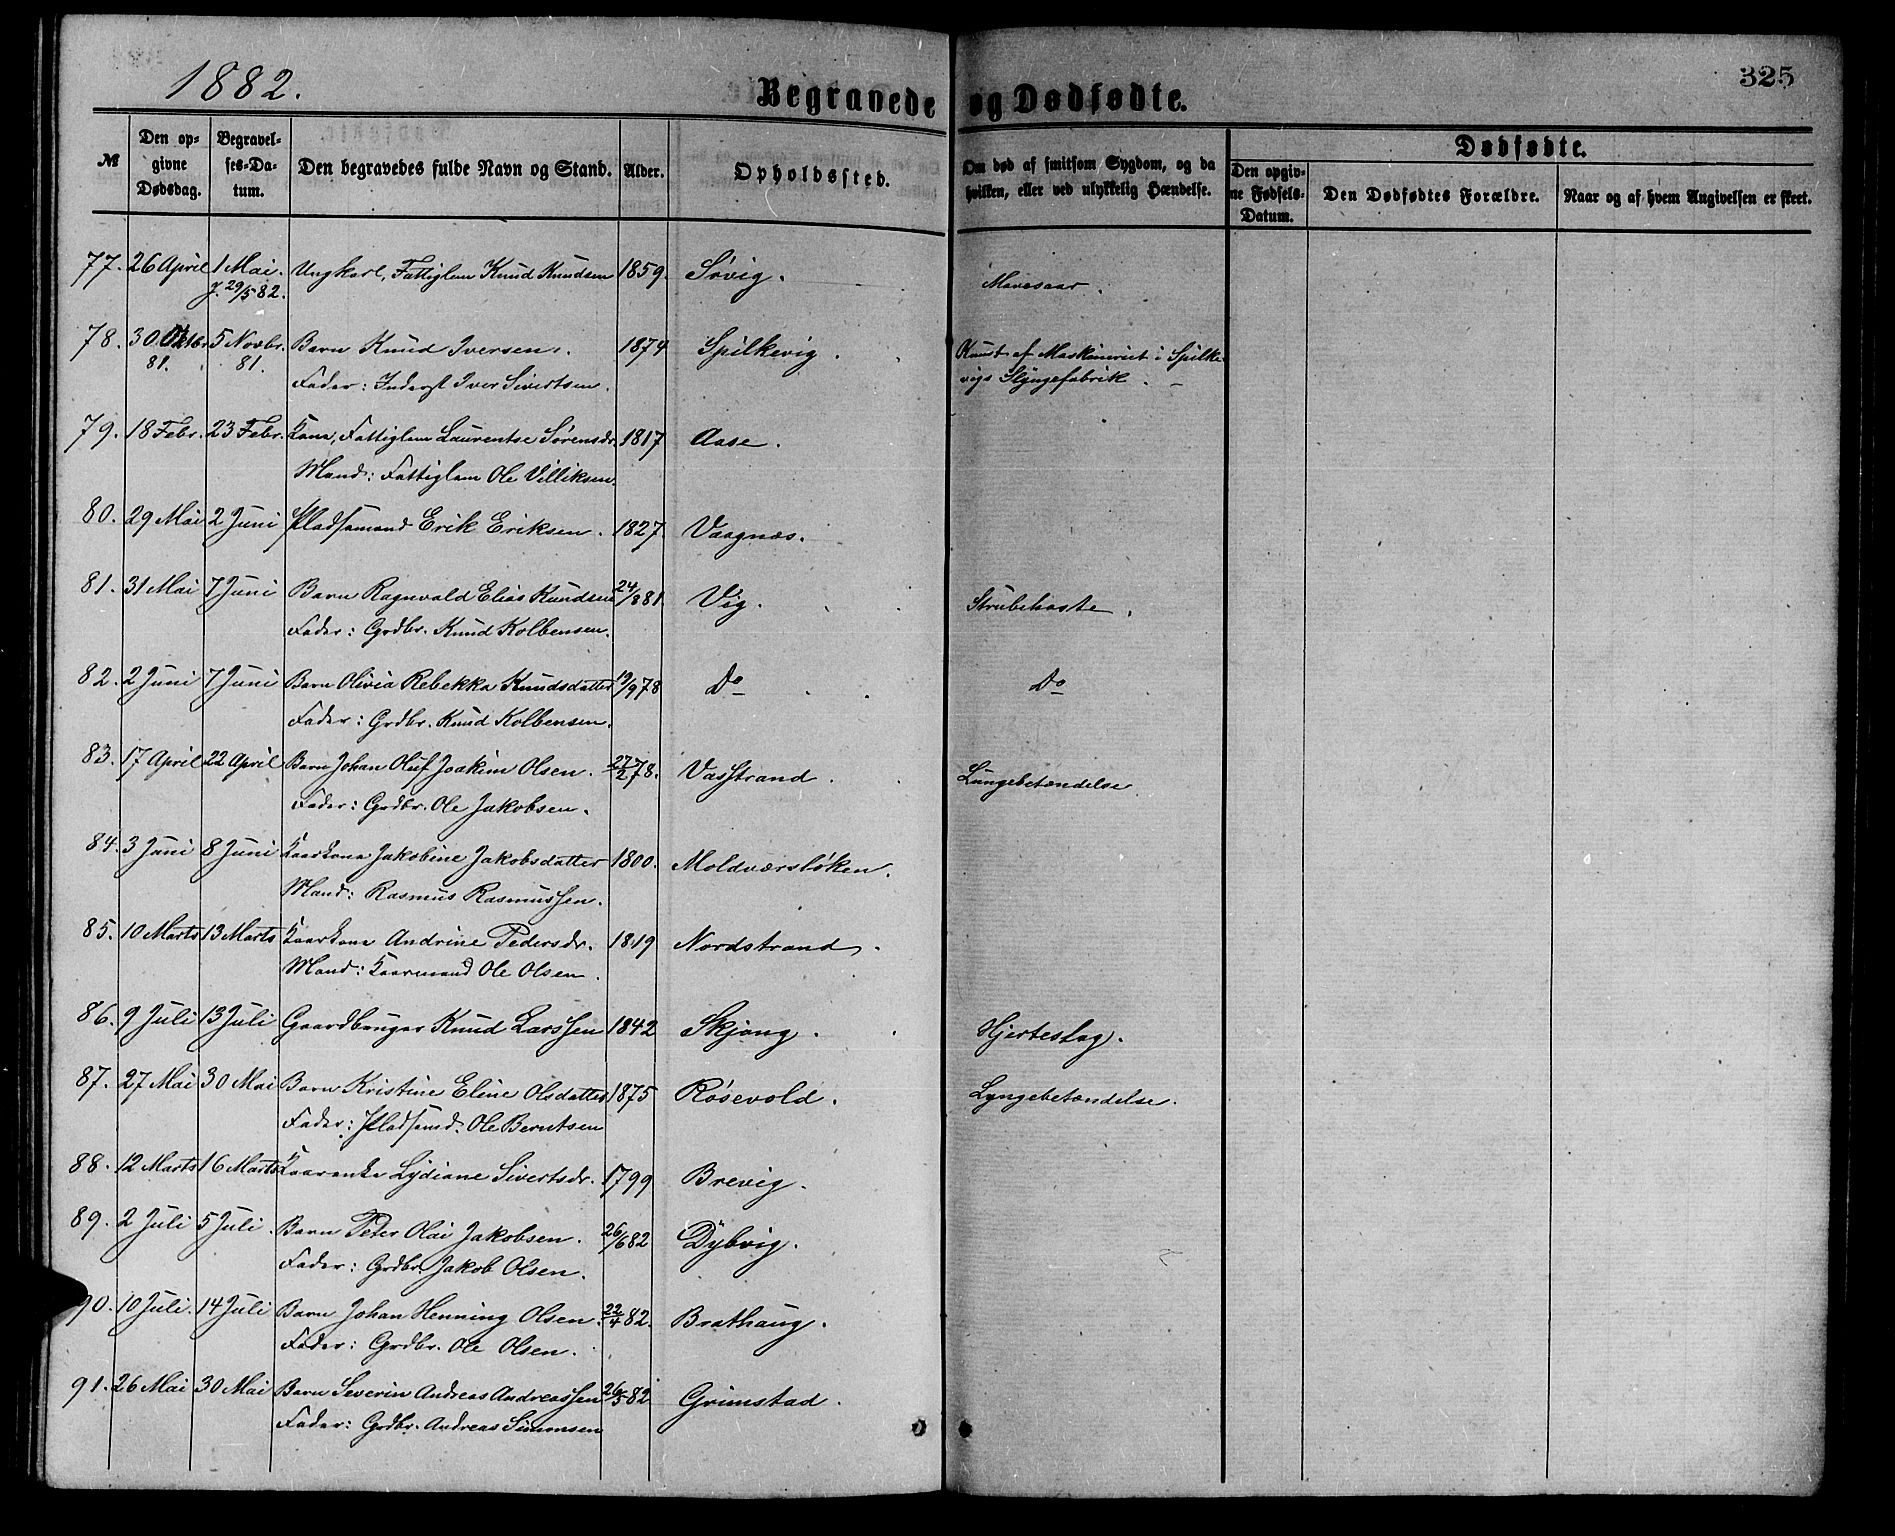 1882.
Begravede og Dødfødte.
325
№
Den opgivne Dødsdag.
Begravelses-Datum.
Den begravedes fulde Navn og Stand.
Alder.
Opholdssted.
Om død af smitsom Sygdom, og da hvilken, eller ved ulykkelig Hændelse.
Dødfødte.
Den opgivne Fødsels-Datum.
Den Dødfødtes Forældre.
Naar og af hvem Angivelsen er skeet.
77. 26 April 1 Mai. Ungkarl, Fattiglem Knud Knudsen 1859. Sövig. Mavesaar.
J. 29/5 82.
78. 30 Oktbr 5 Novbr. Barn Knud Iversen. 1874 Spilkevig. Knust af Maskineriet i Spilke-
81. 81. Fader: Inderst Iver Sivertsen. vigs Slyngefabrik.
79. 18 Febr. 23 Febr. Kone, Fattiglem Laurentse Sörensdr. 1817 Aase.
Mand: Fattiglem Ole Villiksen.
80. 29 Mai 2 Juni Pladsemand Erik Eriksen. 1827. Vaagnæs.
81. 31 Mai 7 Juni Barn Ragnvald Elias Knudsen 24/8 81. Vig. Strubehoste.
Fader: Grdbr. Knud Kolbensen.
82. 2 Juni 7 Juni Barn Olivia Rebekka Knudsdatter 19/9 78 Do Do
Fader: Grdbr. Knud Kolbensen.
83. 17 April 22 April Barn Johan Oluf Joakim Olsen. 27/2 78. Vasstrand. Lungebetændelse.
Fader: Grdbr. Ole Jakobsen.
84. 3 Juni 8 Juni Kaarkone Jakobine Jakobsdatter 1800. Moldværslöken.
Mand: Rasmus Rasmussen.
85. 10 Marts 13 Marts Kaarkone Andrine Pedersdr. 1819 Nordstrand.
Mand: Kaarmand Ole Olsen.
86. 9 Juli 13 Juli Gaardbruger Knud Larssen 1842 Skjong. Hjerteslag.
87. 27 Mai 30 Mai Barn Kristine Eline Olsdatter 1875 Rösevold. Lyngebetændelse.
Fader: Pladsemd. Ole Berntsen
88. 12 Marts 16 Marts Kaarenke Lydiane Sivertsdr. 1799 Brevig.
89. 2 Juli 5 Juli. Barn Peter Olai Jakobsen. 26/6 82 Dybvig.
Fader: Grdbr. Jakob Olsen.
90. 10 Juli. 14 Juli Barn Johan Henning Olsen. 22/4 82. Brathaug.
Fader: Grdbr. Ole Olsen.
91. 26 Mai 30 Mai Barn Severin Andreas Andreassen 26/5 82 Grimstad.
Fader: Grdbr. Andreas Simonsen